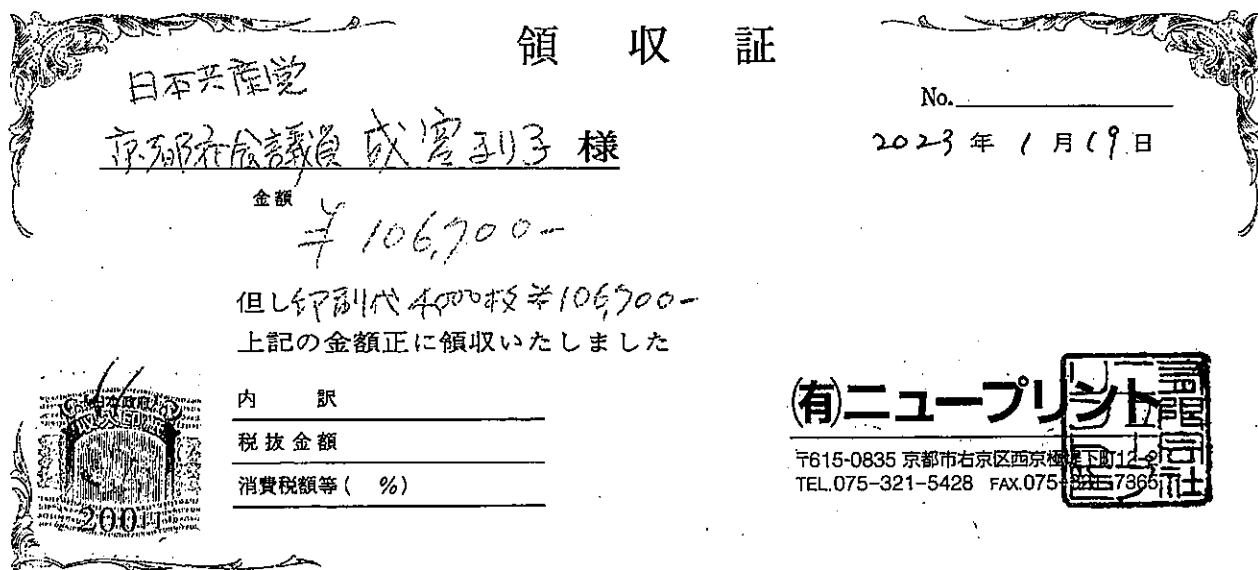 領 収 証
日本共産党
京都府会議員 成宮まり子 様
No.
2023 年 1 月 19 日
金額
¥106,700-
但し 印刷代 4,000枚 ¥106,700-
上記の金額正に領収いたしました
日本政府
収入印紙
200円
内 訳
税抜金額
消費税額等( %)
(有)ニュープリント
〒615-0835 京都市右京区西京極堤下町12-
TEL.075-321-5428 FAX.075-321-7365